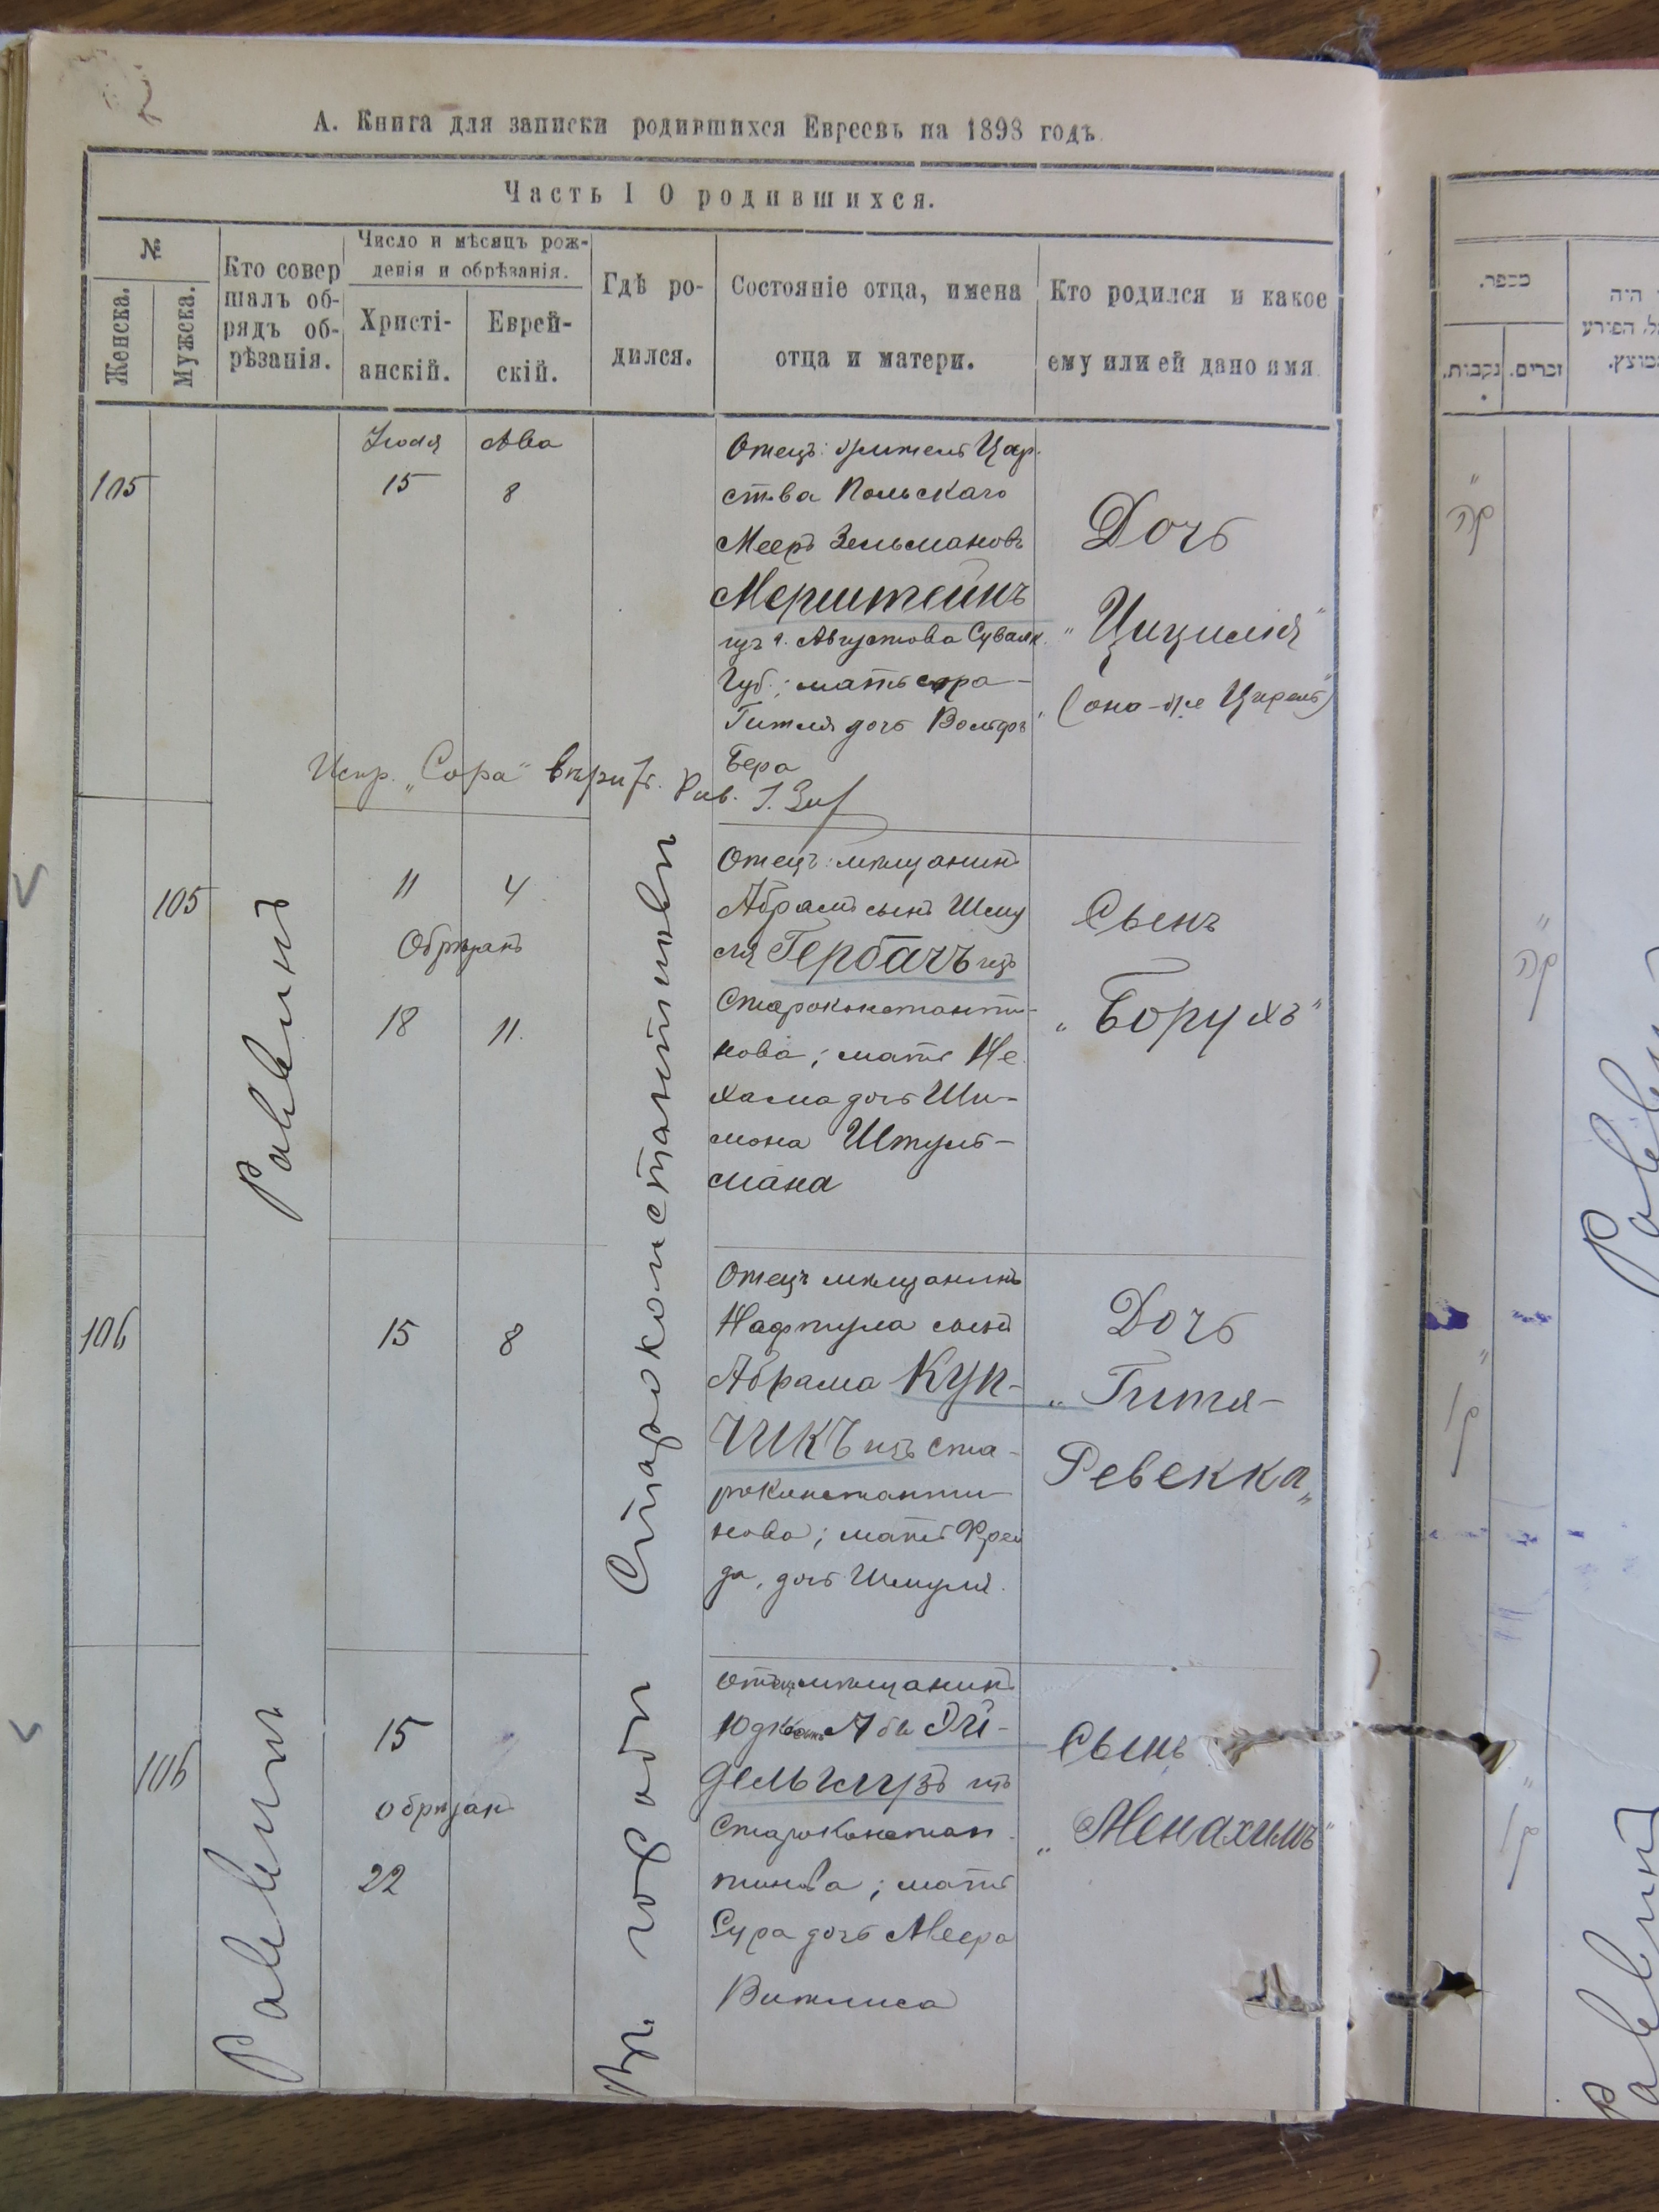 А. Книга для записки родившихся Евреевъ на 1898 годъ.
Часть I О родившихся.
№
Женска.
Мужска.
Кто совер
шалъ об-
рядъ об-
рѣзанія.
Число и мѣсяцъ рож-
денія и обрѣзанія.
Христі-
анскій.
Еврей-
скій.
Гдѣ ро-
дился.
Состояніе отца, имена
отца и матери.
Кто родился и какое
ему или ей дано имя
105
Іюля
15
Ава
8
Отецъ: житель Цар-
ства Польскаго
Мееръ Зельмановъ
Мерштейнъ
изъ г. Августова Сувалк.
Губ.; мать Сора-
Гитля дочь Вольфъ
Бера
Дочь
"Цицилія"
(она-же Цирель)
Испр. "Сора" вѣрно. Рав.
105
Раввинъ
11
4
Обрѣзанъ
18
11.
Въ городѣ Староконстантиновѣ
Отецъ: мѣщанинъ
Абрамъ сынъ Шму
ля Гербачъ изъ
Староконстанти-
нова; мать Не
хама дочь Ши-
мона Штуль-
мана
Сынъ
"Борухъ"
106
15
8
Отецъ мѣщанинъ
Нафтула сынъ
Абрама Куп-
чикъ изъ Ста-
роконстанти-
нова; мать Фрей
да, дочь Шмуля.
Дочь
"Гитля-
Ревекка"
106
Раввинъ
15
обрѣзанъ
22
отецъ мѣщанинъ
Юдко сынъ Абы Эй-
делькизъ изъ
Староконстан-
тинова; мать
Сура дочь Меера
Витлиса
Сынъ
"Менахимъ"
מספר.
נקבות.
זכרים.
היה
הפורע
"
קה
"
קה
"
קו
"
קו